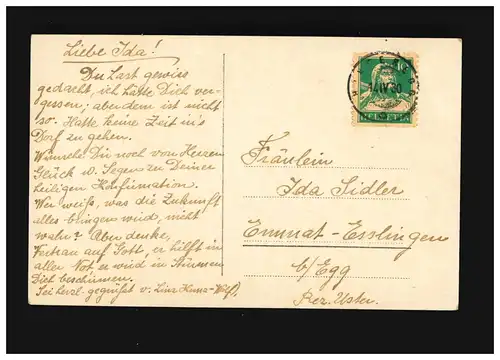 Liebe Ida!
Du hast gewiss
gedacht, ich hätte Dich ver-
gessen; aber dem ist nicht
so. Hatte keine Zeit in's
Dorf zu gehen.
Wünsche Dir noch von Herzen
Glück u. Segen zu Deiner
heiligen Konfirmation.
Wer weiss, was die Zukunft
alles bringen wird, nicht
wahr? Aber denke,
Vertrau auf Gott, er hilft in
aller Not er wird in Stürmen
Dich beschirmen.
Sei herzl. gegrüsst v. Lina
10
IV 30
HELVETIA
Fräulein
Ida Sidler
Esslingen
b/Egg
Bez. Uster.